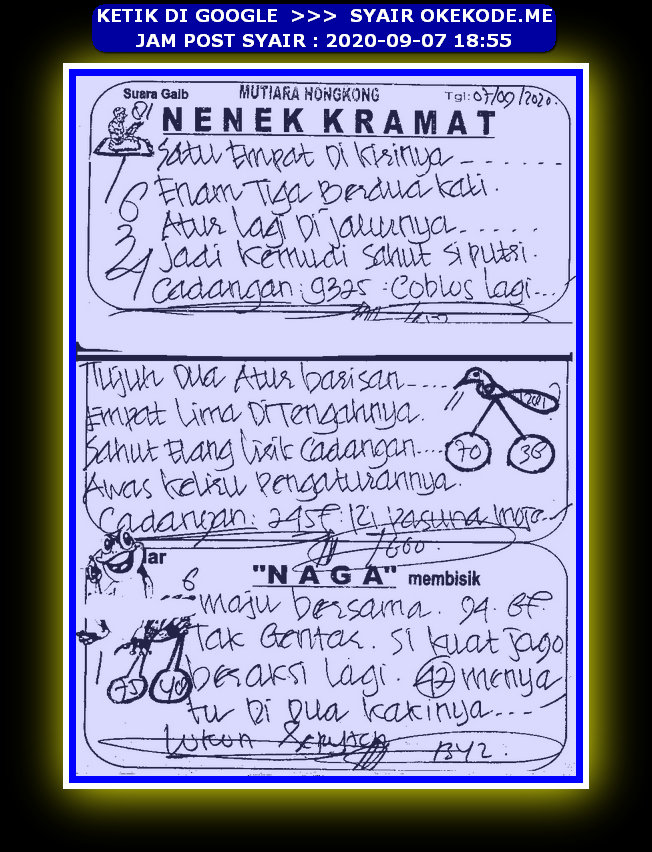 KETIK DI GOOGLE >>> SYAIR OKEKODE.ME
JAM POST SYAIR : 2020-09-07 18:55
Suara Gaib MUTIARA HONGKONG Tgl: 07/09/2020.
NENEK KRAMAT
Satu Empat Di Kirinya - - - - - -
Enam Tiga Berdua kali.
Atur lagi Di jalurnya - - - - - -
Jadi Kemudi Sahut si putri.
Cadangan : 9325 : Coblos lagi...
6
3
4
Tujuh Dua Atur barisan - - - -
Empat Lima DiTengahnya.
Sahut Elang Cadangan....
Awas keliru pengaturannya.
Cadangan : 245
70 38
ar
"NAGA" membisik
6
maju bersama. 94.
Tak Gentar. Si kuat jago
beraksi lagi. 42 menya
tu Di Dua kakinya...-
75 40